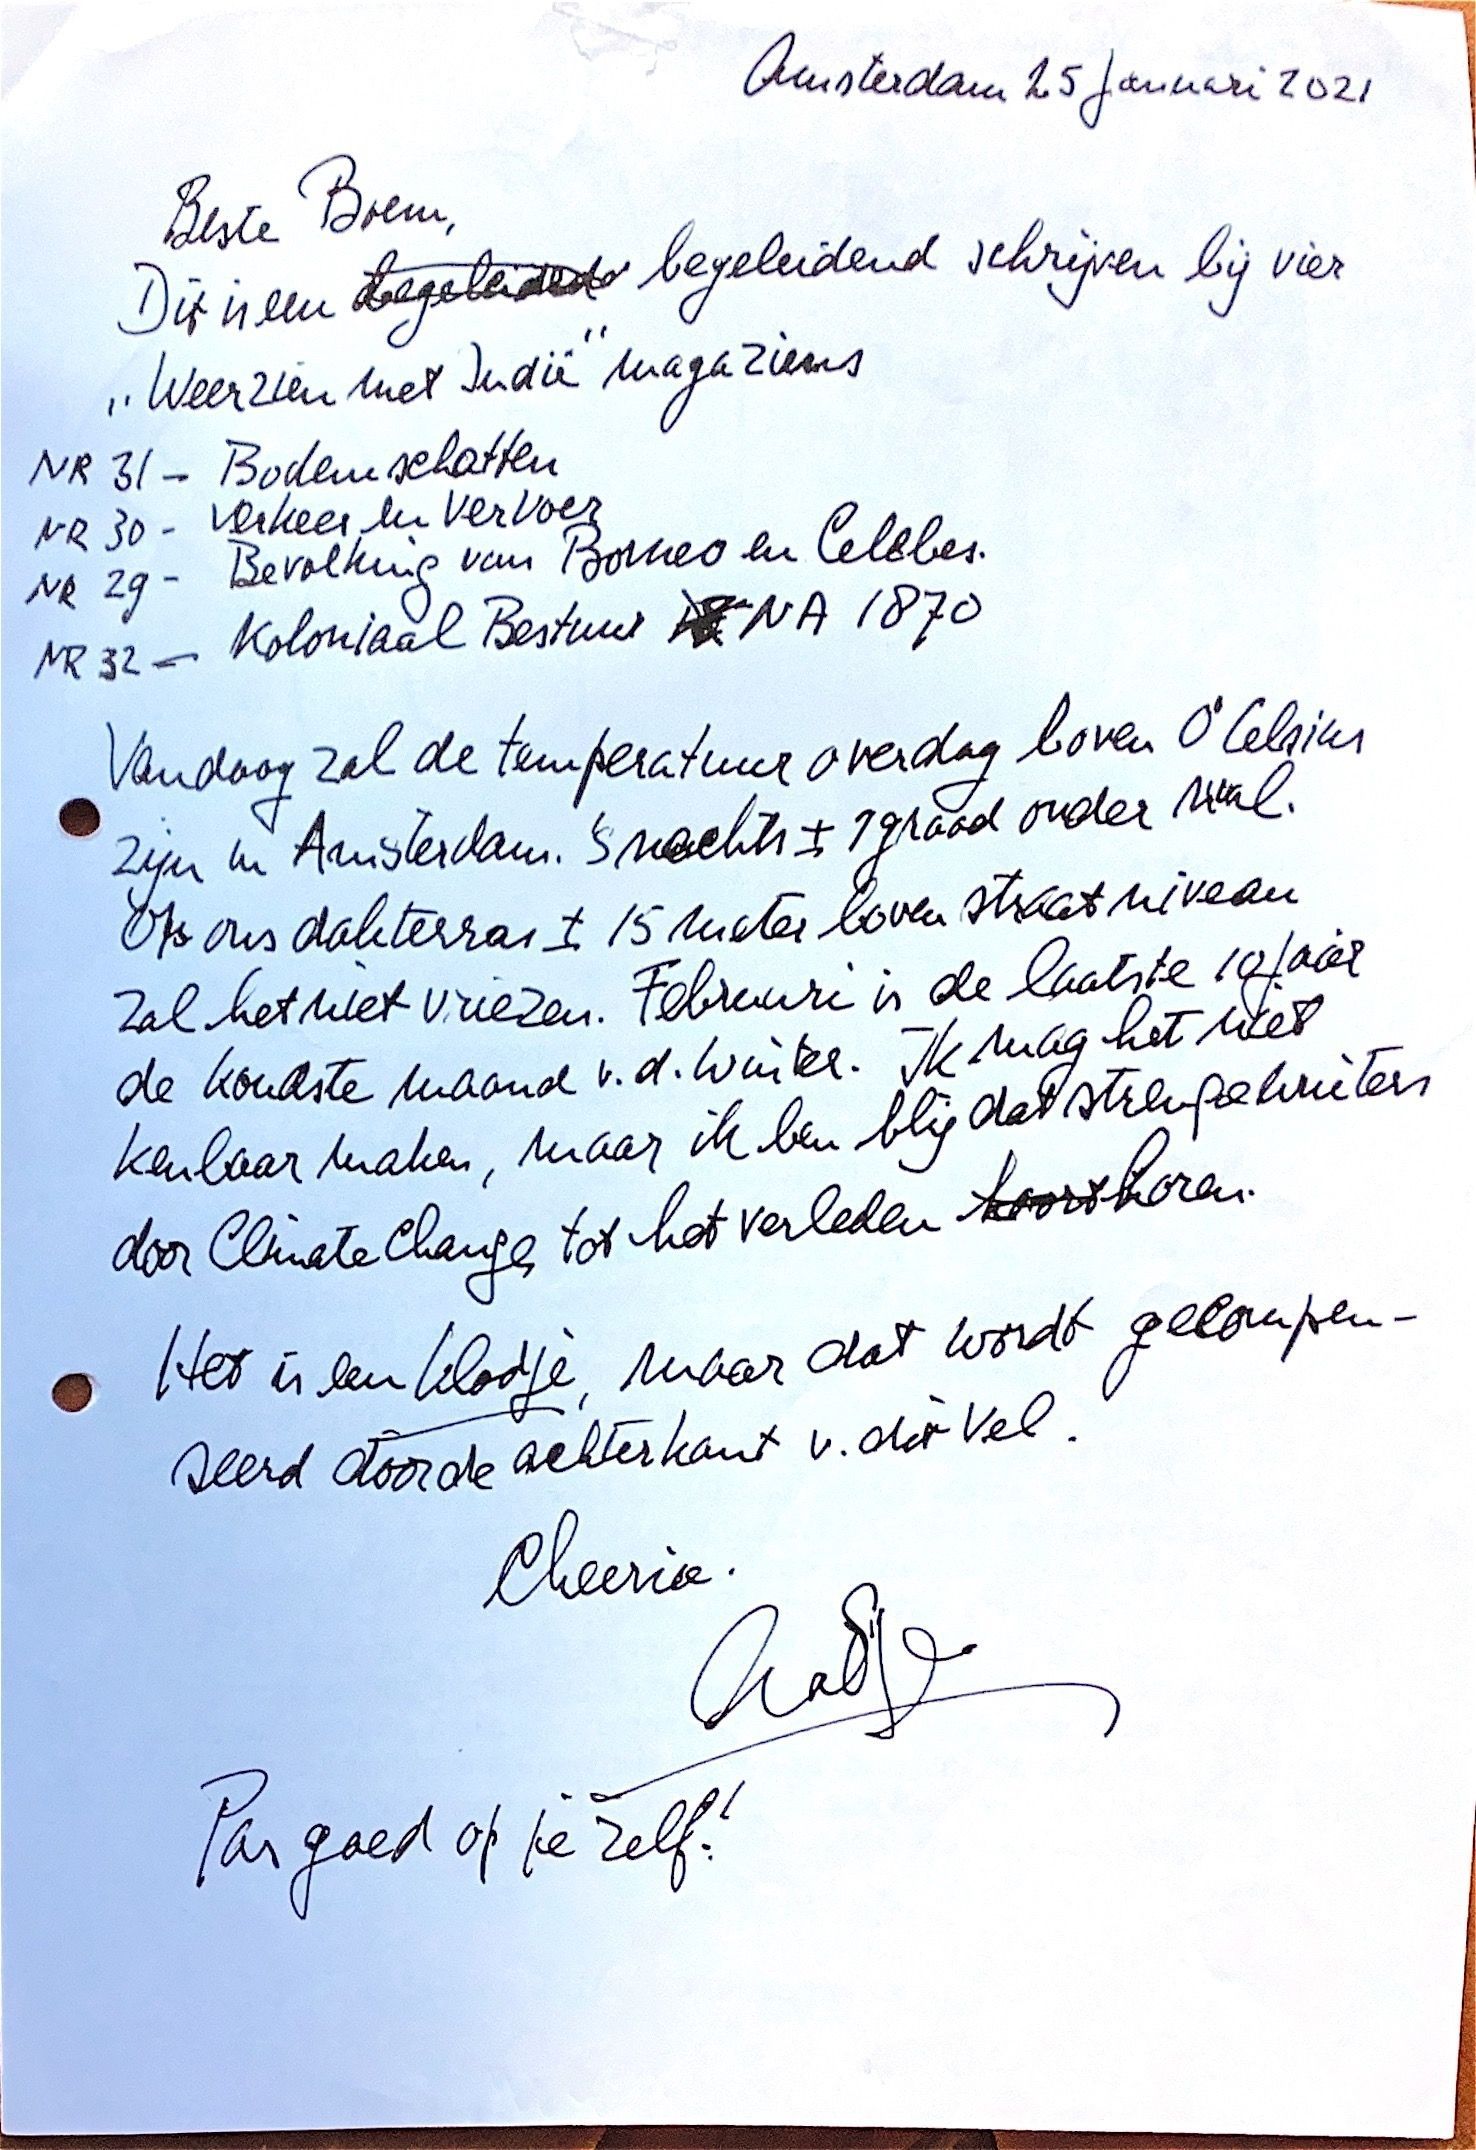 Amsterdam 25 Januari 2021
Beste Boem,
Dit is een begeleidend schrijven bij vier
„Weerzien met Indië" magaziens
NR 31 - Bodemschatten
NR 30 - Verkeer en Vervoer
NR 29 - Bevolking van Borneo en Celebes.
NR 32 - Koloniaal Bestuur NA 1870
Vandaag zal de temperatuur overdag boven 0° Celsius
zijn in Amsterdam. 'S nachts ± 1 graad onder nul.
Op ons dakterras ± 15 meter boven straatniveau
zal het niet vriezen. Februari is de laatste 10 jaar
de koudste maand v.d. winter. Ik mag het niet
kenbaar maken, maar ik ben blij dat strenge winters
door Climate Change, tot het verleden horen.
Het is een kladje, maar dat wordt gecompen-
seerd door de achterkant v. dit vel.
Cheerio.
Pas goed op je zelf!